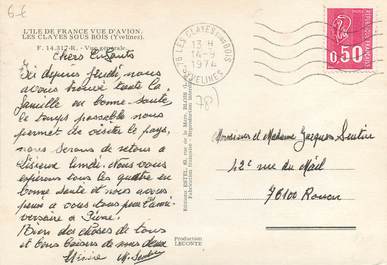 6-E
L'ILE DE FRANCE VUE D'AVION.
LES CLAYES SOUS BOIS (Yvelines).
F. 14.317-R. - Vue générale
Chers Enfants
Ici depuis jeudi, nous
avons trouvé toute la
famille en bonne santé
le temps passable nous
permet de visiter le pays,
nous serons de retour à
Lisieux lundi. Nous vous
espérons tous les quatre en
bonne santé et nous avons
pensé à vous tous pour l'anni-
versaire à
Bien des choses de tous
et bons baisers de nous deux
78 LES CLAYES SOUS BOIS
13 H
14-9
1974
YVELINES
78
POSTES
REPUBLIQUE FRANÇAISE
0,50
Production
LECONTE
Monsieur et Madame Jacques
42 rue du Mail
76100 Rouen